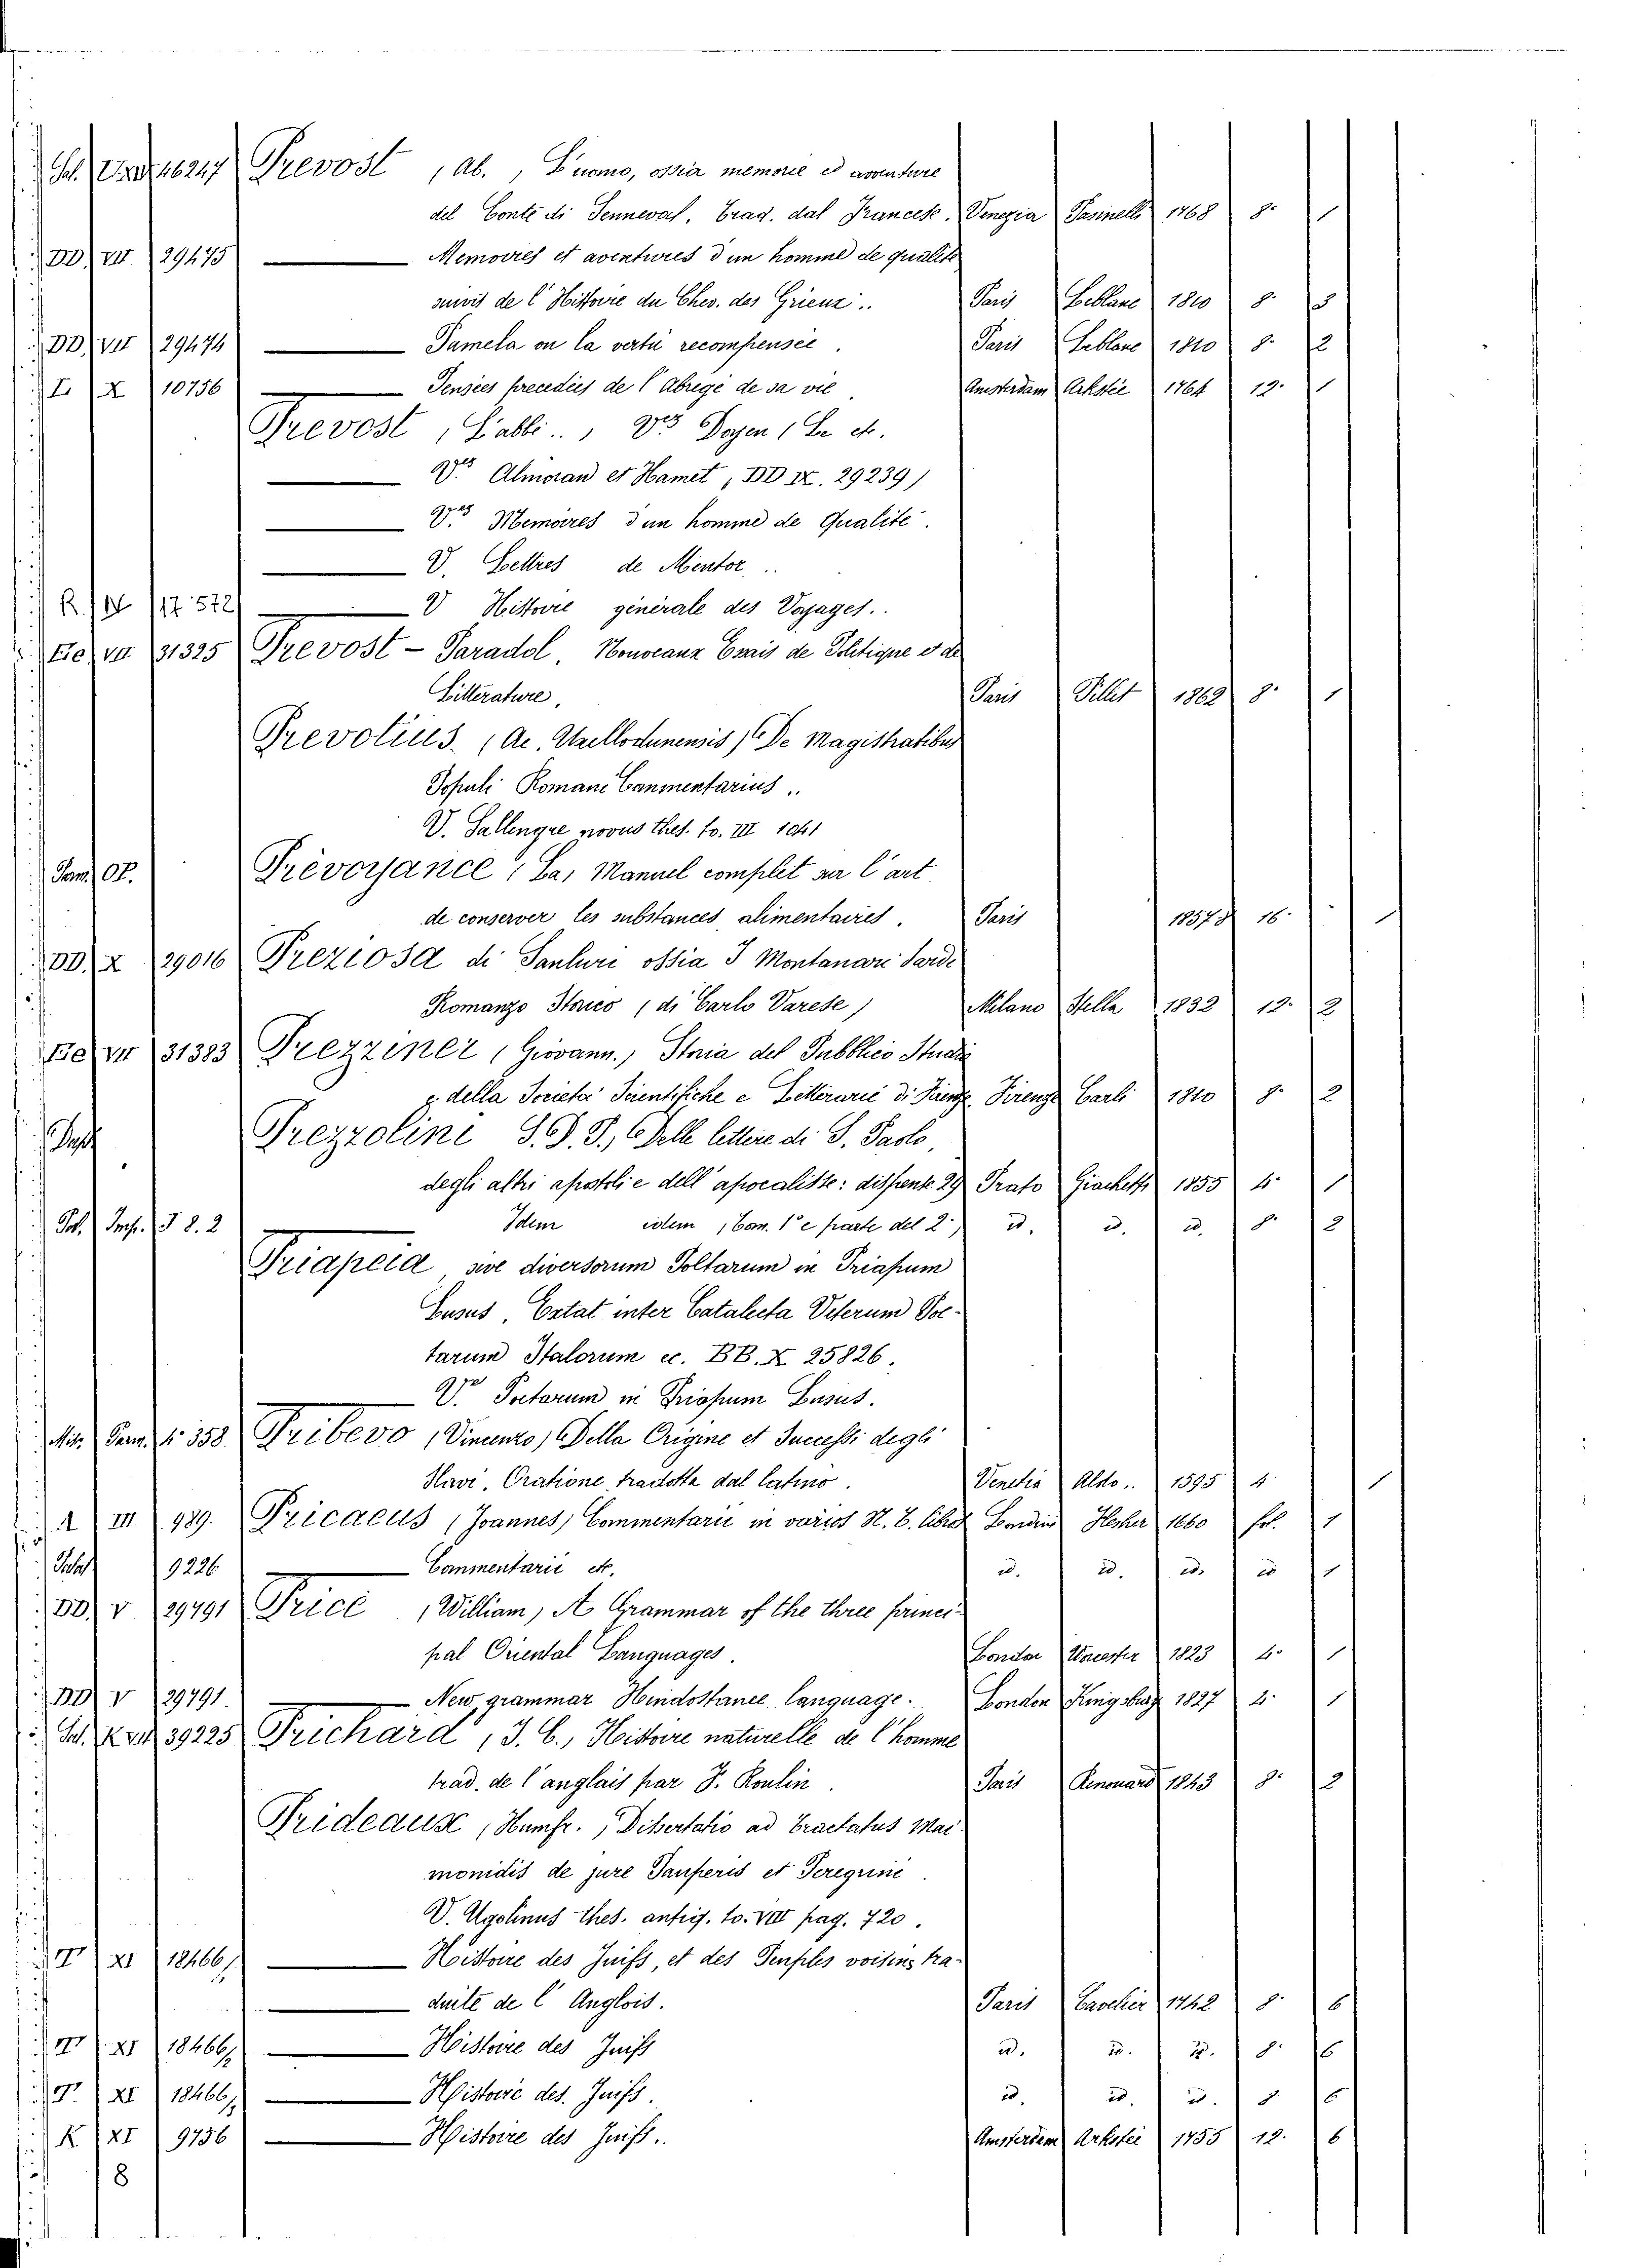 Prevost (Ab.) L'uomo, ossia memorie ed avventure
del Conte di Senneval. Trad. dal Francese. Venezia 1768 8° 1
DD VII 29475 Memoires et aventures d'un homme de qualité
suivis de l'Histoire du Chev. des Grieux.. Paris Leblanc 1810 8°
DD VII 29474 Pamela ou la vertu recompensée. Paris Leblanc 1810 8° 2
L X 10756 Pensées precedées de l'abregé de sa vie. Amsterdam Arkstée 1764 12° 1
Prevost (L'abbé..) V. Doyen (Le etc.
V. Almoran et Hamet (DD IX. 29239)
V. Memoires d'un homme de Qualité.
V. Lettres de Mentor..
R. 17.572 V Histoire générale des Voyages..
Ee VII 31325 Prevost-Paradol, Nouveaux Essais de Politique et de
Litterature, Paris Pillet 1862 8° 1
Prevotius. (Ae. Uxellodunensis) De Magistratibus
Populi Romani Commentarius..
V. Sallengre novus thes. to. III 1041
Prévoyance (La) Manuel complet sur l'art
de conserver les substances alimentaires. Paris 16° 1
DD. X 29016 Preziosa di Sanluri ossia I Montanari Sardi
Romanzo Storico (di Carlo Varese) Milano Stella 1832 12° 2
Ee VII 31383 Prezziner (Giovann.) Storia del Pubblico Studio
e della Società Scientifiche e Letterarie di Firenze. Firenze Carli 1810 8° 2
Prezzolini S. P. P., Delle lettere di S. Paolo,
degli altri apostoli e dell'apocalisse: dispense 29 Prato Giachetti 1855 4° 1
Idem idem (Tom. 1° e parte del 2°) id. id. id. 8° 2
Priapeia, sive diversorum Poëtarum in Priapum
Lusus, Extat inter Catalecta Veterum Poe-
tarum Italorum ec. BB. X 25826.
V. Poetarum in Priapum Lusus.
358 Pribevo (Vincenzo) Della Origine et Successi degli
Slavi. Oratione tradotta dal latino. Venetia Aldo.. 1595 4° 1
A III 989. Pricaeus (Joannes) Commentarii in varios N. T. libros Londini Hesher 1660 fol. 1
9226 Commentarii etc. id. id. id. id 1
DD. V 29791 Price (William) A Grammar of the three princi-
pal Oriental Languages. London Worcester 1823 4° 1
DD V 29791 New grammar Hindostanee language. London Kingsbury 1827 4° 1
39225 Prichard (J. C.) Histoire naturelle de l'homme
trad. de l'anglais par F. Roulin. Paris Renouard 1843 8° 2
Prideaux (Humfr.) Dissertatio ad tractatus Mai-
monidis de jure Pauperis et Peregrini.
V. Ugolinus thes. antiq. to. VIII pag. 720.
XI 18466 Histoire des Juifs, et des Peuples voisins tra-
duite de l'Anglois. Paris Cavelier 1742 8° 6
XI 18466 Histoire des Juifs id. id. id. 8° 6
XI 18466 Histoire des Juifs. id. id. id. 8 6
K XI 9756 Histoire des Juifs.. Amsterdam Arkstei 1755 12° 6
8